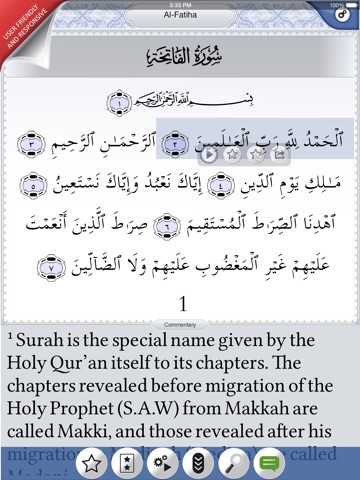 USER FRIENDLY
AND RESPONSIVE
3:33 PM
100%
Al-Fatiha
سُورَةُ الفَاتِحَةِ
بِسْمِ ٱللَّهِ ٱلرَّحْمَـٰنِ ٱلرَّحِيمِ ١
ٱلْحَمْدُ لِلَّهِ رَبِّ ٱلْعَـٰلَمِينَ ٢ ٱلرَّحْمَـٰنِ ٱلرَّحِيمِ ٣
مَـٰلِكِ يَوْمِ ٱلدِّينِ ٤ إِيَّاكَ نَعْبُدُ وَإِيَّاكَ نَسْتَعِينُ ٥
ٱهْدِنَا ٱلصِّرَٰطَ ٱلْمُسْتَقِيمَ ٦ صِرَٰطَ ٱلَّذِينَ أَنْعَمْتَ
عَلَيْهِمْ غَيْرِ ٱلْمَغْضُوبِ عَلَيْهِمْ وَلَا ٱلضَّآلِّينَ ٧
1
Commentary
¹ Surah is the special name given by the
Holy Qur’an itself to its chapters. The
chapters revealed before migration of the
Holy Prophet (S.A.W) from Makkah are
called Makki, and those revealed after his
migration called